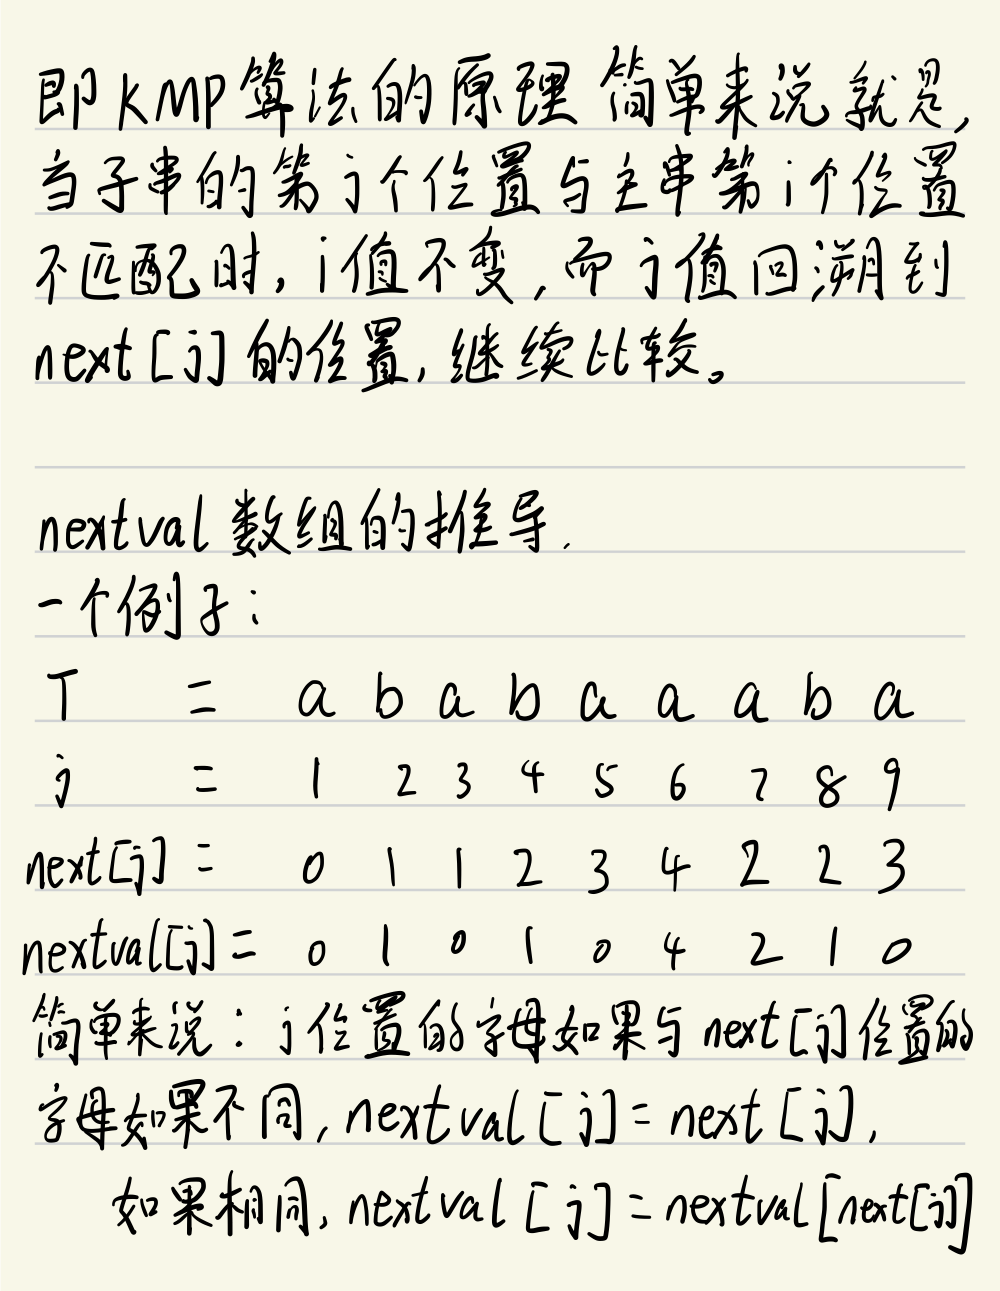 即KMP算法的原理 简单来说就是,
当子串的第j个位置与主串第i个位置
不匹配时, i值不变, 而j值回溯到
next[j]的位置, 继续比较。
nextval数组的推导.
一个例子:
T = a b a b a a a b a
j = 1 2 3 4 5 6 7 8 9
next[j] = 0 1 1 2 3 4 2 2 3
nextval[j] = 0 1 0 1 0 4 2 1 0
简单来说: j位置的字母如果与next[j]位置的
字母如果不同, nextval[j]=next[j],
如果相同, nextval[j]=nextval[next[j]]